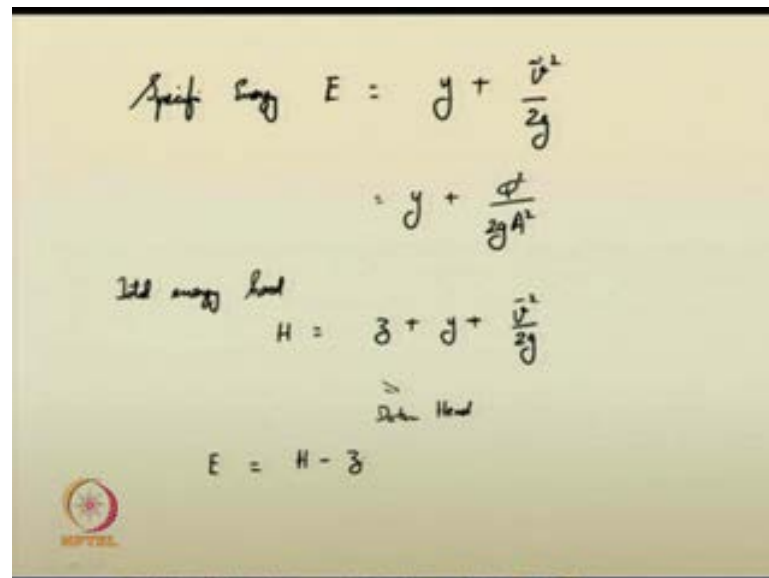 Specif Energy E = y + v̄²/2g
= y + Q²/2gA²
Total energy head
H = z + y + v̄²/2g
Datum Head
E = H - z
NPTEL